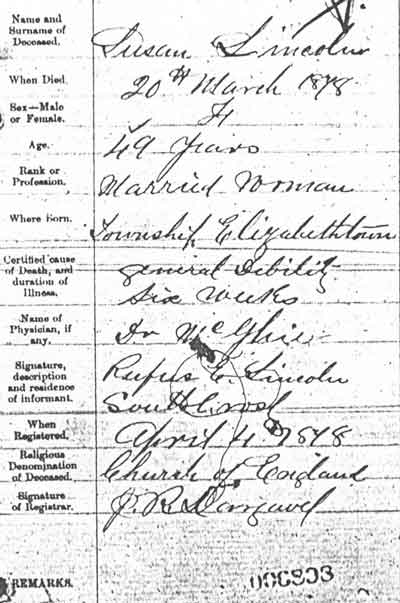 Name and Surname of Deceased. Susan Lincoln
When Died. 20th March 1878
Sex—Male or Female. F
Age. 49 Years
Rank or Profession. Married Woman
Where Born. Township Elizabethtown
Certified cause of Death, and duration of Illness. general Debility
Six Weeks
Name of Physician, if any. Dr McGhie
Signature, description and residence of informant. Rufus E. Lincoln
South
When Registered. April 4 1878
Religious Denomination of Deceased. Church of England
Signature of Registrar. J. R.
REMARKS.